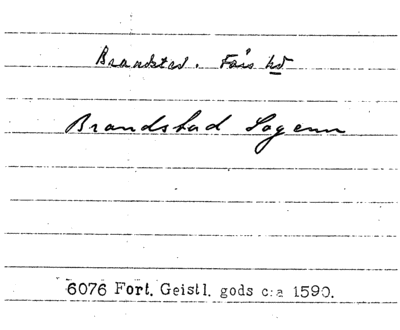 Brandstad. Färs hd
Brandstad Sogenn
6076 Fort. Geistl. gods c:a 1590.